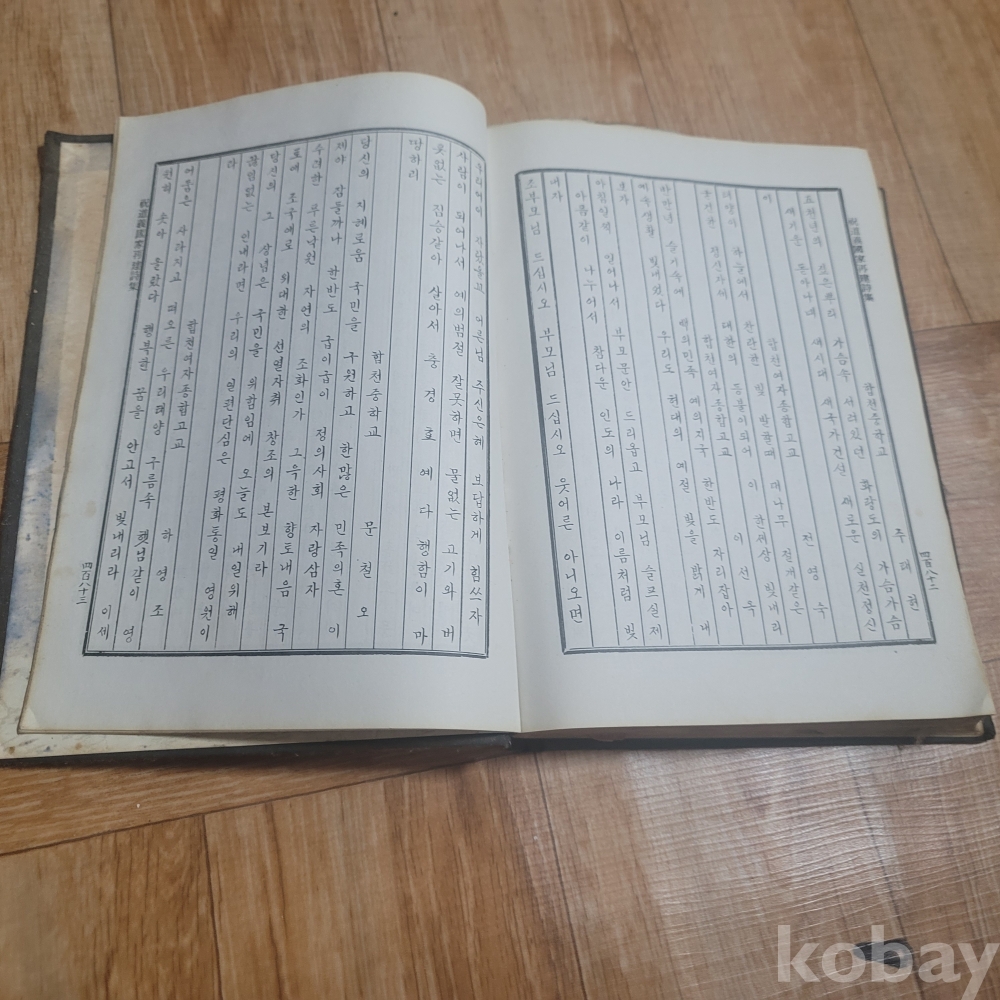 四百八十二
합천중학교 주 태 현
깊은뿌리 가슴속 서려있던 화랑도의 가슴가슴
새기운 돋아나네 새시대 새국가건설 새로운 실천정신
합천여자종합고교 전 영 숙
하늘에서 찬란한 빛 발할때 대나무 절개같은
이 대한의 등불이되어 이 한세상 빛내리
합천여자종합고교 이 선 옥
한반도 자리잡아 내
반만년 슬기속에 백의민족 예의지국 빛을 밝게
예속생활 빛내었다 우리도 현대의 예절
보자
아침일찍 일어나서 부모문안 드리옵고 부모님 슬프실제
아픔같이 나누어서 참다운 인도의 나라 이름처럼 빛
내자
조부모님 드십시오 부모님 드십시오 웃어른 아니오면
祝道義國家再建詩集
우리들이 자랐을고 어른님 주신은혜 보답하게 힘쓰자
사람이 되어나서 예의범절 잘못하면 물없는 고기와 버
못없는 짐승같아 살아서 충경효예 다행함이 마
땅하리
합천중학교 문 철 오
당신의 지혜로움 국민을 구원하고 한많은 민족의혼 이
제야 잠들까나 한반도 굽이굽이 정의사회 자랑삼자
수려한 푸른낙원 자연의 조화인가 그윽한 향토내음 국
토애 조국애로 위대한 선열자취 창조의 본보기라
당신의 그 상념은 국민을 위함임에 오늘도 내일위해
끊임없는 인내라면 우리의 일편단심은 평화통일 영원이
라
합천여자종합고교 하 영 조
어둠은 사라지고 떠오른 우리태양 구름속 햇님같이 영
원히 솟아 올랐다 행복한 꿈을 안고서 빛내리라 이세
祝道義國家再建詩集
四百八十三
kobay